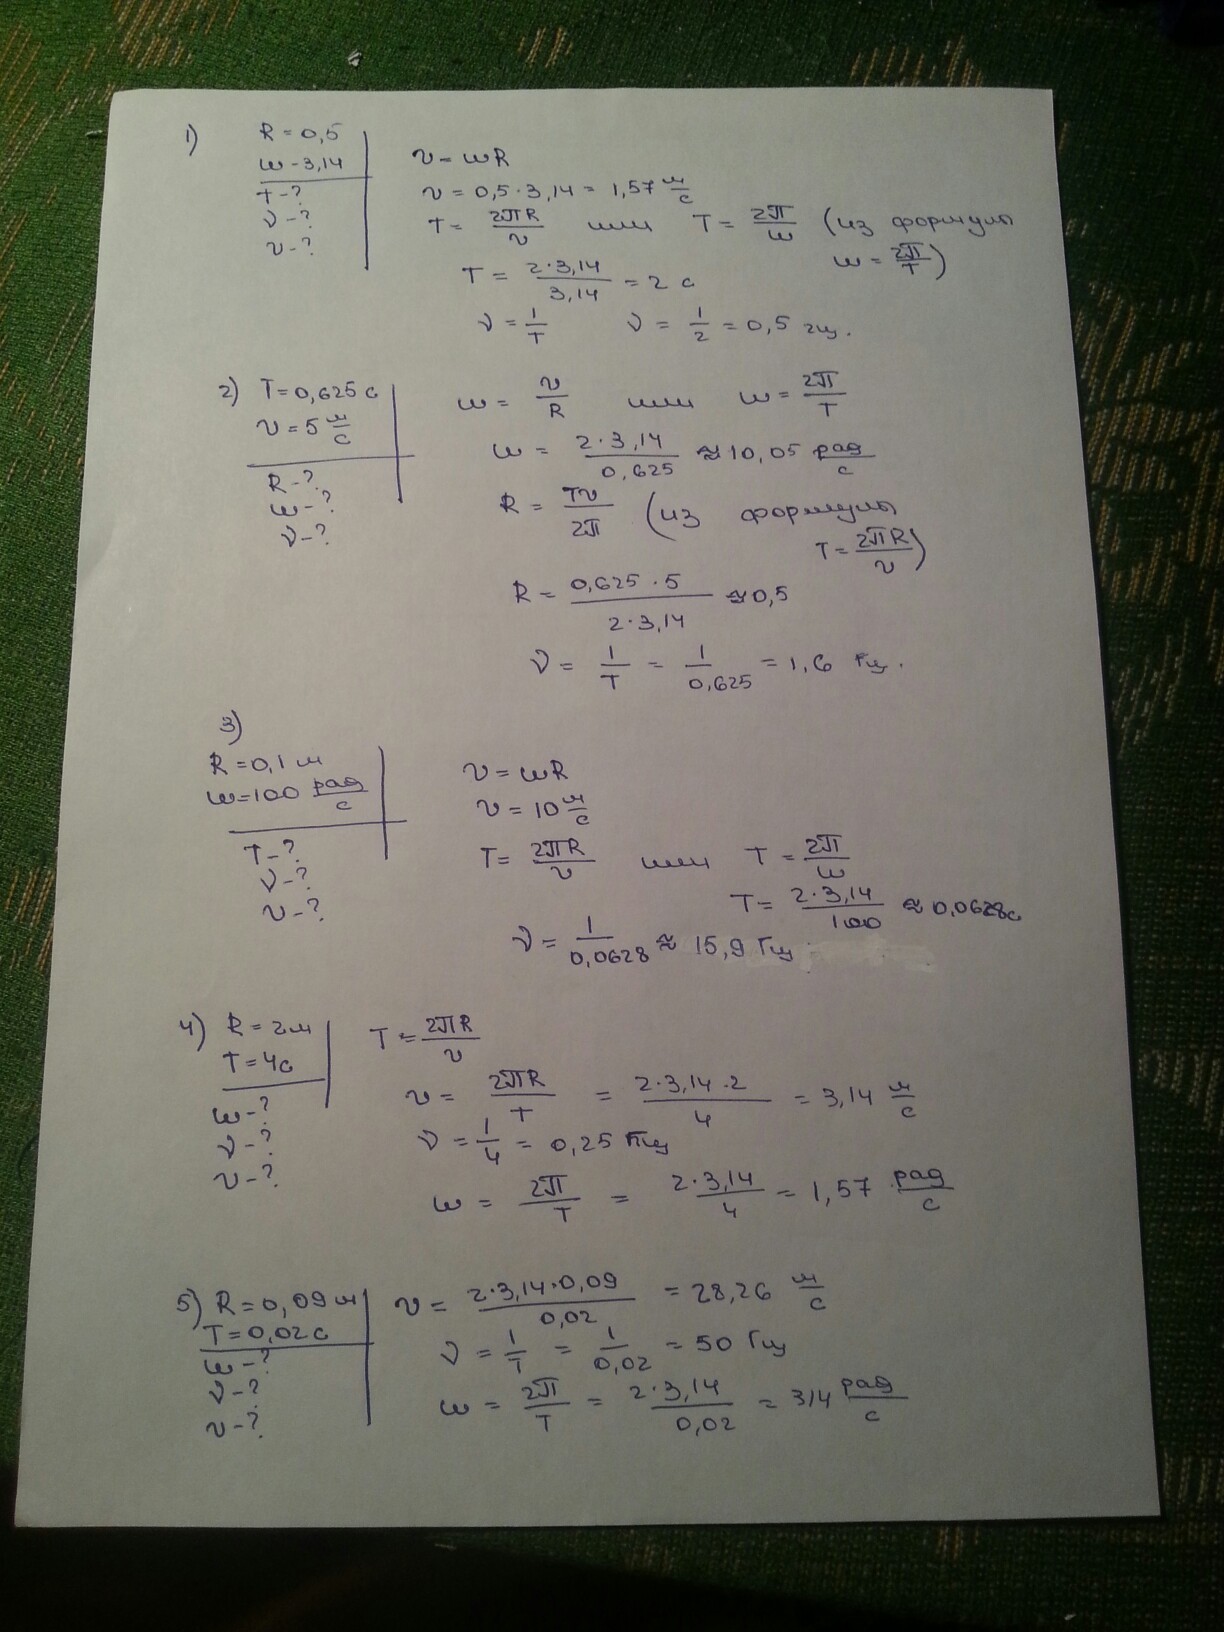 1) R = 0,5
ω - 3,14
T - ?
ν - ?
v - ?
v = ωR
v = 0,5 · 3,14 = 1,57 м/с
T = 2πR/v или T = 2π/ω (из формулы
ω = 2π/T)
T = 2·3,14/3,14 = 2 с
ν = 1/T ν = 1/2 = 0,5 гц.
2) T = 0,625 с
v = 5 м/с
R - ?
ω - ?
ν - ?
ω = v/R или ω = 2π/T
ω = 2·3,14/0,625 ≈ 10,05 рад/с
R = Tv/2π (из формулы
T = 2πR/v)
R = 0,625 · 5/2·3,14 ≈ 0,5
ν = 1/T = 1/0,625 = 1,6 Гц.
3)
R = 0,1 м
ω = 100 рад/с
T - ?
ν - ?
v - ?
v = ωR
v = 10 м/с
T = 2πR/v или T = 2π/ω
T = 2·3,14/100 ≈ 0,0628с
ν = 1/0,0628 ≈ 15,9 Гц
4) R = 2м
T = 4с
ω - ?
ν - ?
v - ?
T = 2πR/v
v = 2πR/T = 2·3,14·2/4 = 3,14 м/с
ν = 1/4 = 0,25 Гц
ω = 2π/T = 2·3,14/4 = 1,57 рад/с
5) R = 0,09 м
T = 0,02 с
ω - ?
ν - ?
v - ?
v = 2·3,14·0,09/0,02 = 28,26 м/с
ν = 1/T = 1/0,02 = 50 Гц
ω = 2π/T = 2·3,14/0,02 = 314 рад/с